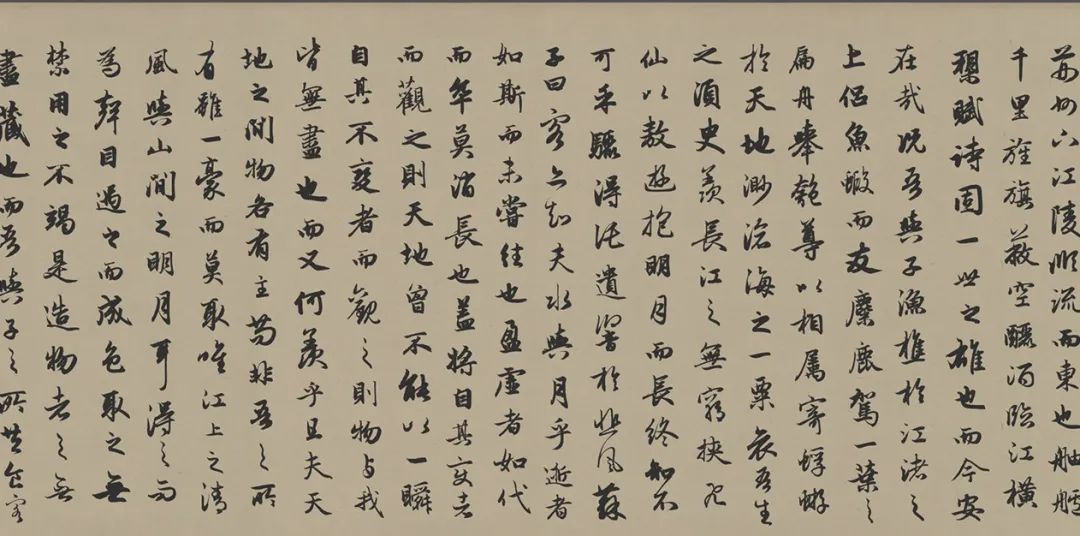 荊州下江陵順流而東也舳艫
千里旌旗蔽空釃酒臨江橫
槊賦詩固一世之雄也而今安
在哉況吾與子漁樵於江渚之
上侶魚蝦而友麋鹿駕一葉之
扁舟舉匏尊以相屬寄蜉蝣
於天地渺滄海之一粟哀吾生
之須臾羨長江之無窮挾飛
仙以敖遊抱明月而長終知不
可乎驟得託遺響於悲風蘇
子曰客亦知夫水與月乎逝者
如斯而未嘗往也盈虛者如代
而卒莫消長也蓋將自其變者
而觀之則天地曾不能以一瞬
自其不變者而觀之則物與我
皆無盡也而又何羨乎且夫天
地之間物各有主苟非吾之所
有雖一豪而莫取唯江上之清
風與山間之明月耳得之而
為聲目遇之而成色取之無
禁用之不竭是造物者之無
盡藏也而吾與子之所共食客